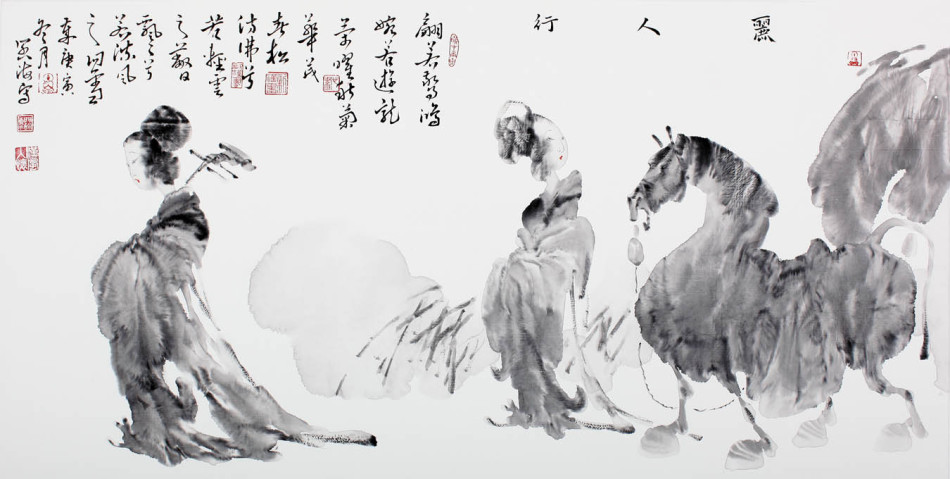 麗人行
翩若驚鴻
婉若遊龍
榮曜秋菊
華茂
春松
彷彿兮
若輕雲
之蔽日
飄飄兮
若流風
之回雪
庚寅
冬月
海寫